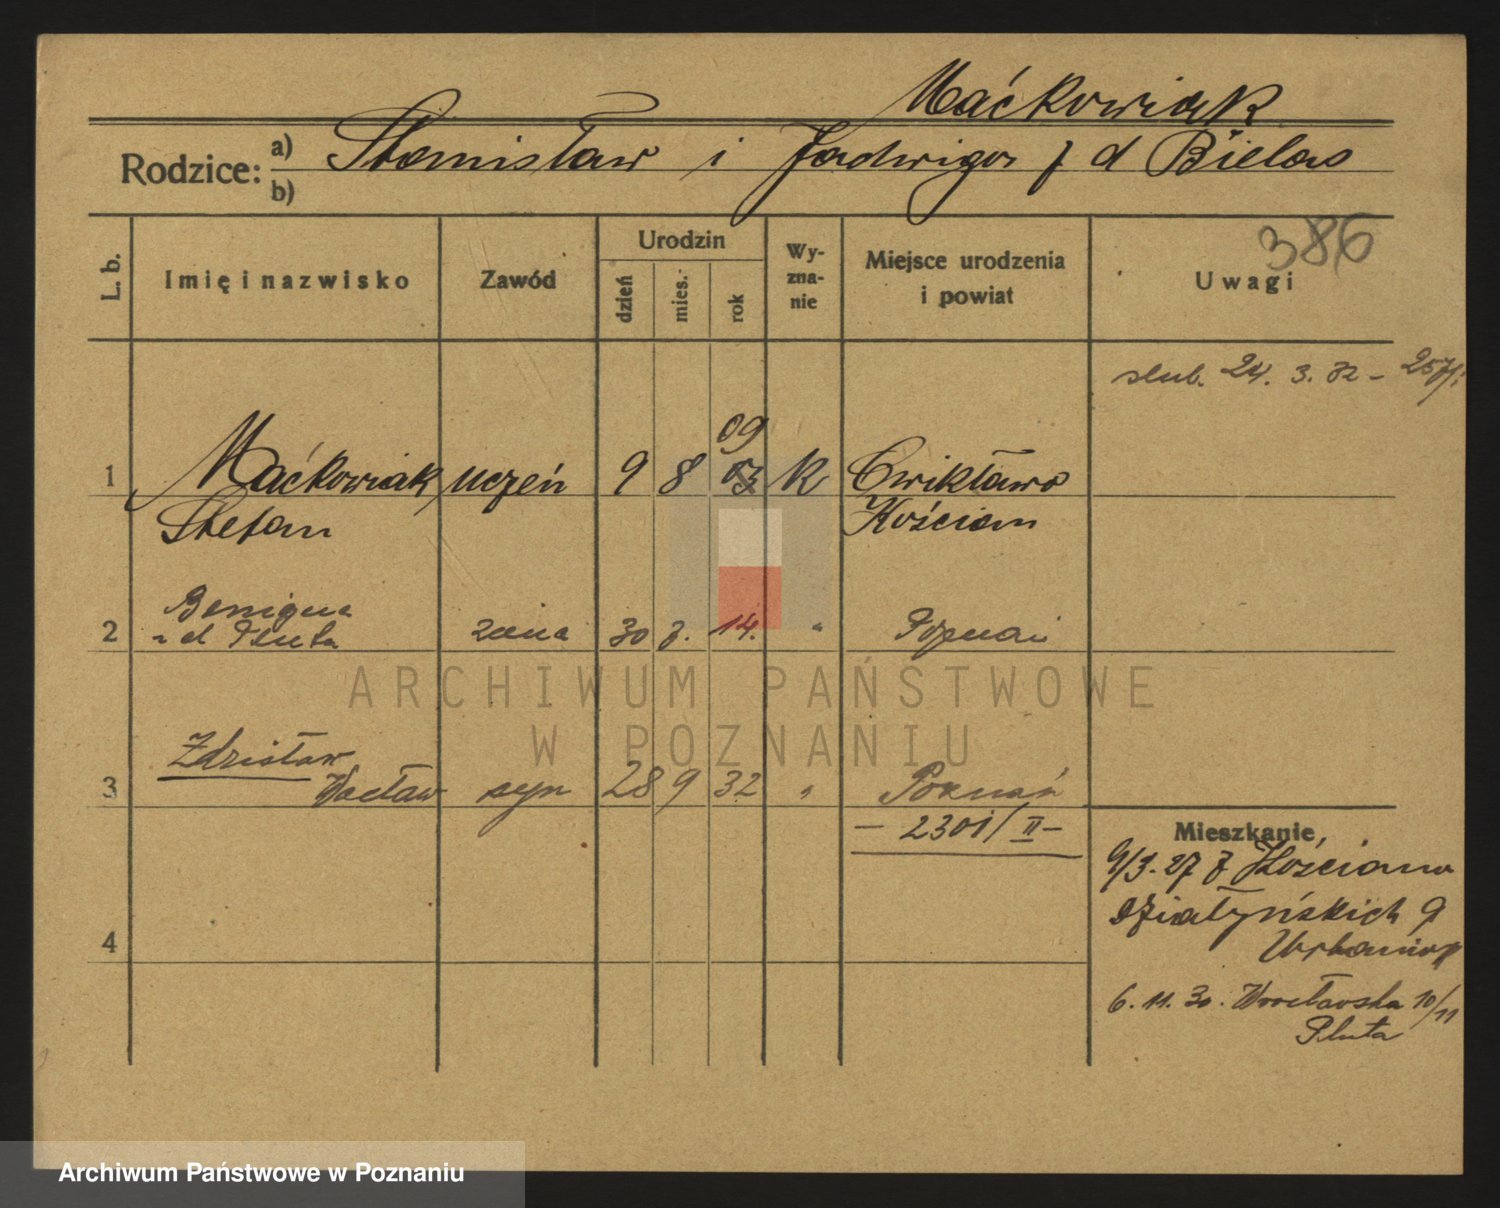 Maćkowiak
Rodzice: a) Stanisław i Jadwiga z d Bielas
b)
L. b.
Imię i nazwisko
Zawód
Urodzin
dzień
mies.
rok
Wy-
zna-
nie
Miejsce urodzenia
i powiat
386
Uwagi
slub. 24. 3. 32 -
09
1 Maćkowiak uczeń 9 8 03 K Cwikławo
Stefan Kościan
Benigna
2 z d Pluta żona 30 14. " Poznań
Zdzisław
3 Wacław syn 28 9 32 " Poznań
- 2301/II -
Mieszkanie
9/3. 27 z Kościana
Działyńskich 9
4
Urbaniak
6. 11. 30. Wrocławska 10/11
Pluta
ARCHIWUM PAŃSTWOWE
W POZNANIU
Archiwum Państwowe w Poznaniu